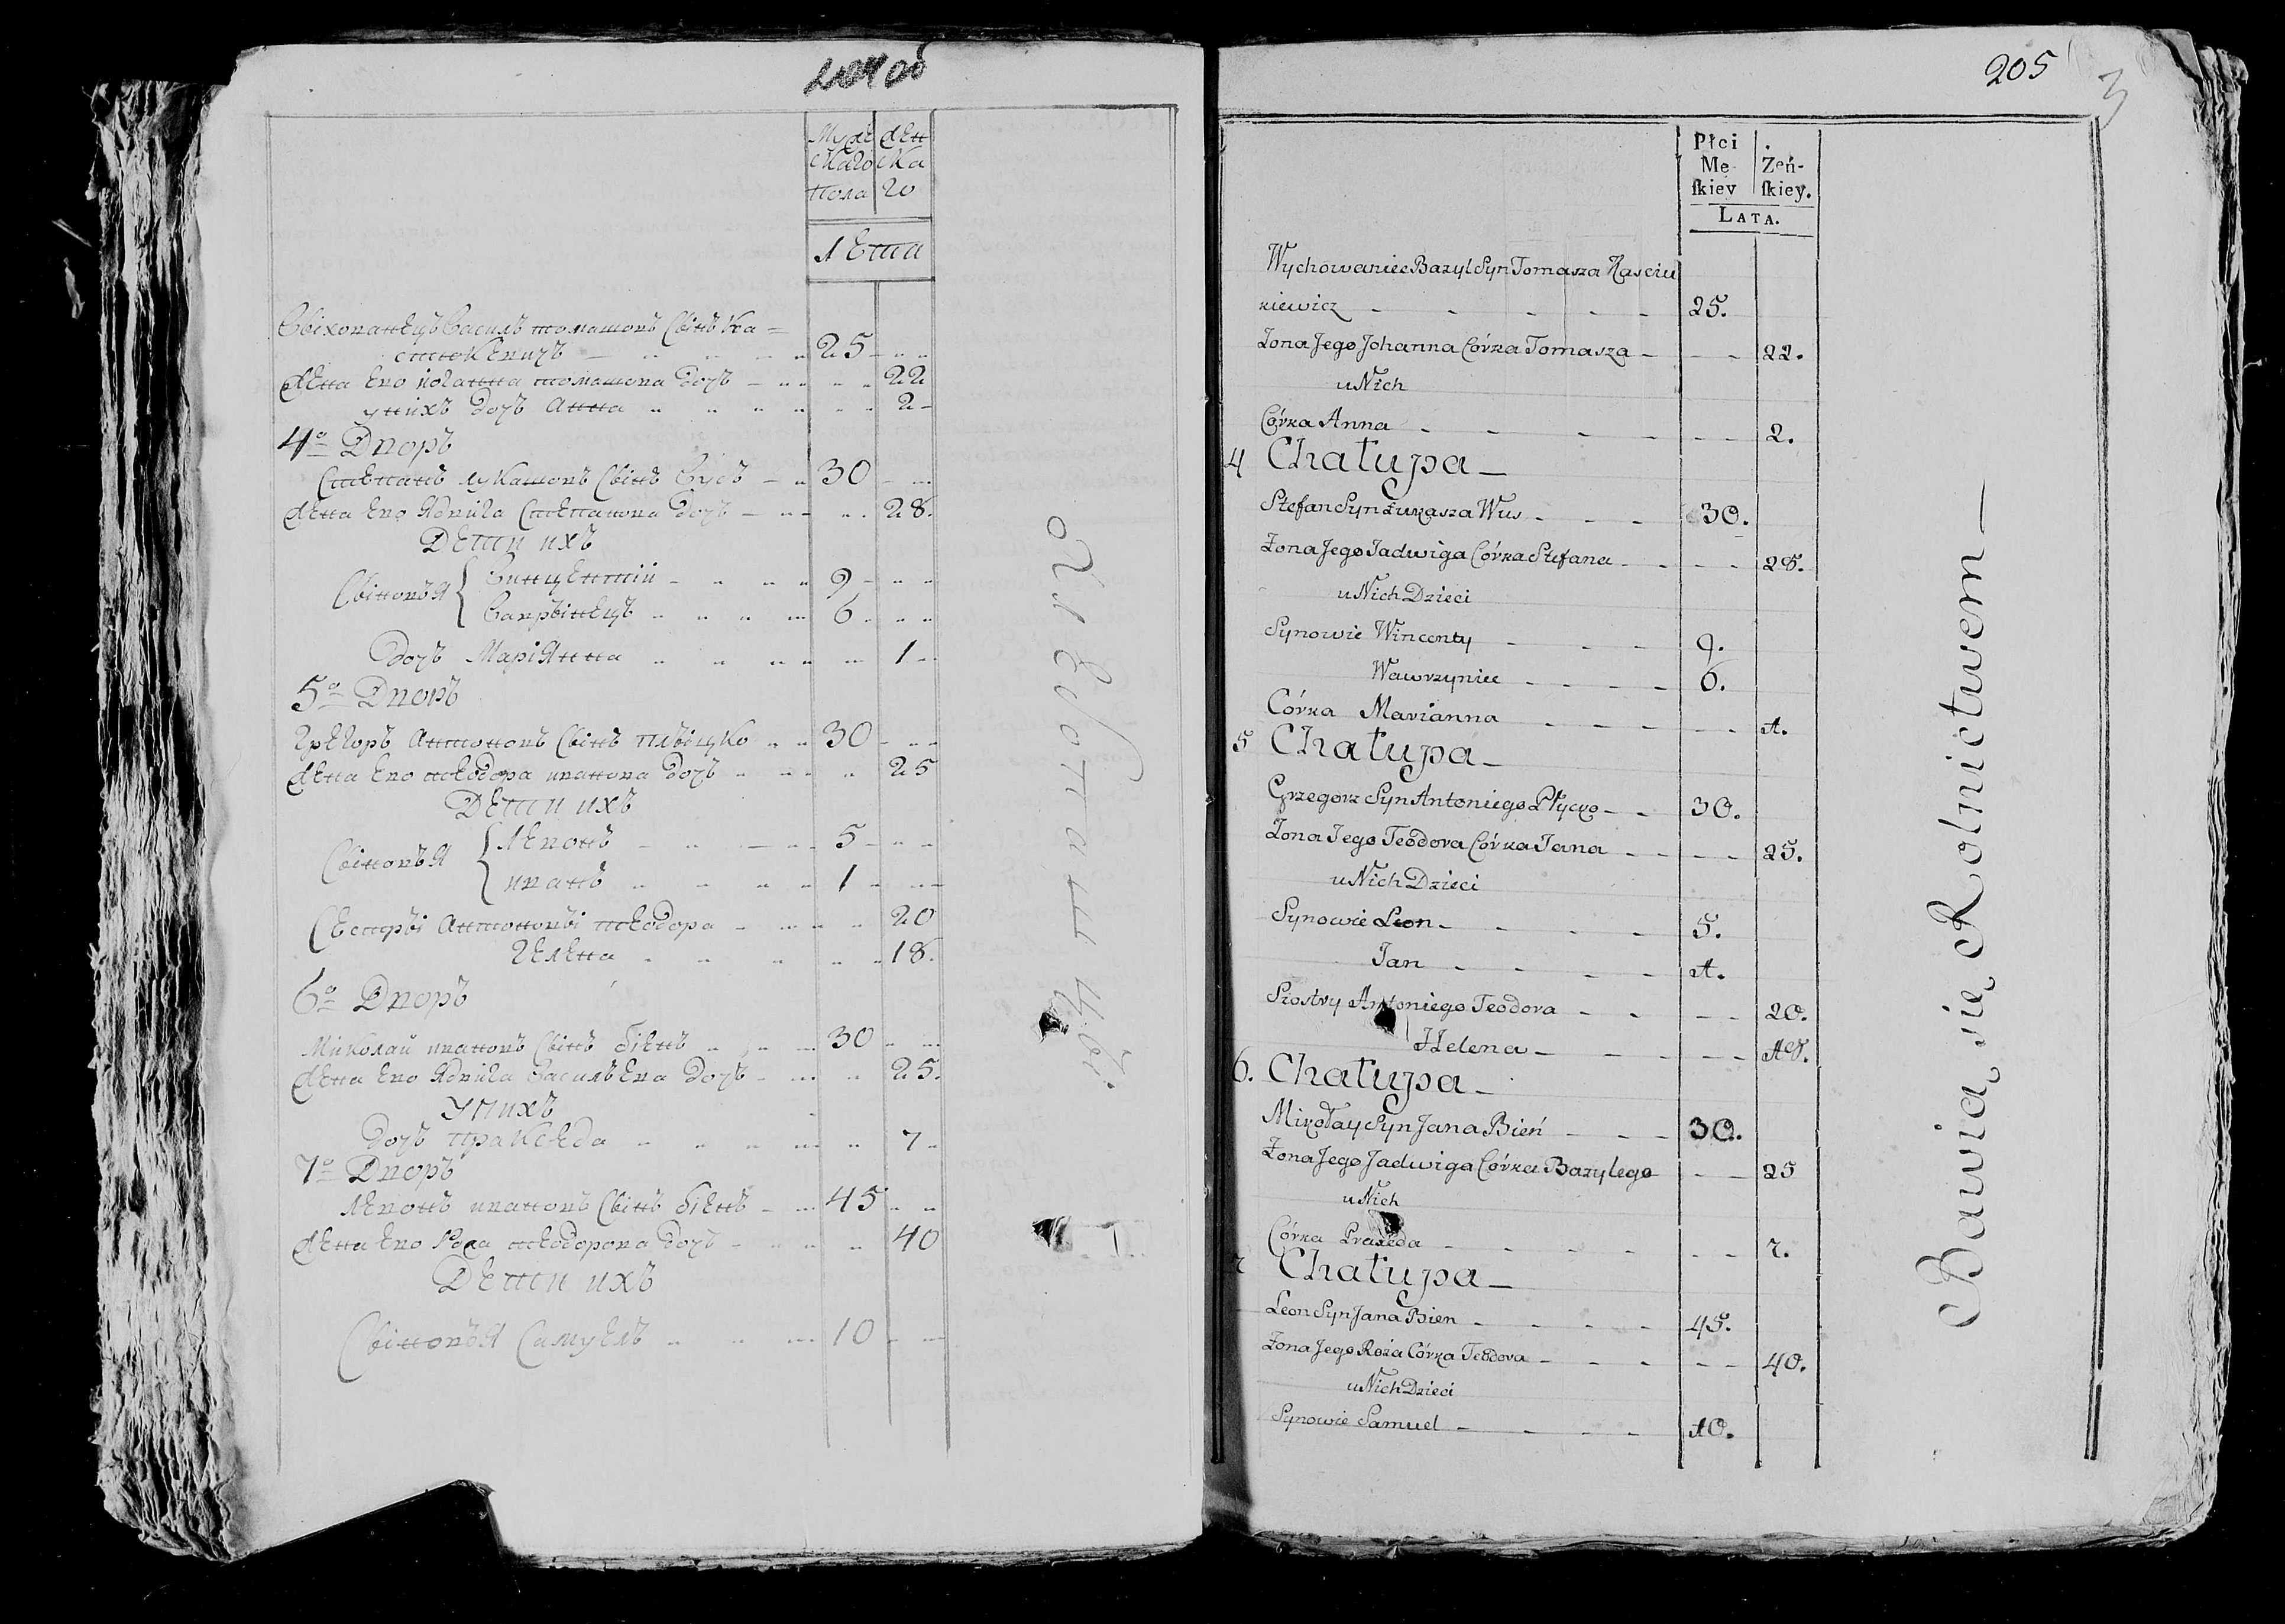 204 об
Мужескаго пола
Женскаго
Лета
Выхованецъ Василь томашовъ сынъ Ка=
стюкевичъ 25
Жена Ево иоганна томашева дочъ 22
у нихъ дочъ Анна 2
4о Дворъ
Степанъ лукашовъ сынъ Вусъ 30
Жена Ево Ядвига Степанова дочъ 28.
Дети ихъ
Сыновья Винцентий 9
Вавръинецъ 6
Дочъ Марiянна 1
5о Дворъ
Грегоръ Антоновъ сынъ плыцко 30
Жена Ево теодора иванова дочъ 25
Дети ихъ
Сыновья Левонъ 5
иванъ 1
Сестры Антоновы теодора 20
Гелена 18.
6о Дворъ
Миколай ивановъ сынъ бiень 30
Жена Ево Ядвига Васильева дочъ 25.
У нихъ
дочъ пракседа 7
7о Дворъ
Левонъ ивановъ сынъ бiень 45
Жена Ево Рожа теодорова дочъ 40
Дети ихъ
Сыновья Самуель 10
205
3
Płci Mę-ſkiey
Żeń-ſkiey.
LATA.
Wychowaniec Bazyl Syn Tomasza Kasciu
kiewicz 25.
Żona Jego Johanna Córka Tomasza 22.
u Nich
Córka Anna 2.
4 Chałupa
Stefan Syn Łukasza Wus 30.
Żona Jego Jadwiga Córka Stefana 28.
u Nich Dzieci
Synowie Wincenty 9.
Wawrzyniec 6.
Córka Marianna 1.
5 Chałupa
Grzegorz Syn Antoniego Płycko 30.
Żona Jego Teodora Córka Jana 25.
u Nich Dzieci
Synowie Leon 5.
Jan 1.
Siostry Antoniego Teodora 20.
Helena 18.
6. Chałupa
Mikołay Syn Jana Bień 30.
Żona Jego Jadwiga Córka Bazylego 25
u Nich
Córka Praxeda 7.
7 Chałupa
Leon Syn Jana Bien 45.
Żona Jego Róża Córka Teodora 40.
u Nich Dzieci
Synowie Samuel 10.
Bawią się Rolnictwem